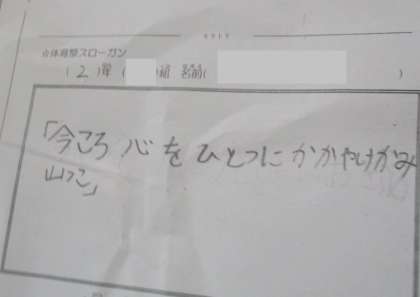 ☆体育祭スローガン
(2)年()組 名前()
「今こそ 心を ひとつに かがやけかみ
山っこ」